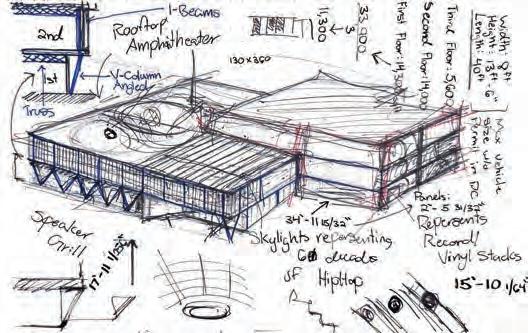 I-Beams
Rooftop
Amphitheater
2nd
1st
V-Column
Angled
Truss
130x360
11,300
3
33,900
First Floor: 14,300
Second Floor: 14,000
Third Floor: 5,600
Width: 8 ft
Height: 13 ft - 6"
Length: 40 ft
Max vehicle
size w/o
Permit in DC
Panels:
2'- 5 31/32"
Represents
Record/
Vinyl Stacks
34'-11 15/32"
Skylights repersenting
decades
of HipHop
Speaker
Grill
15"-10 1/64"